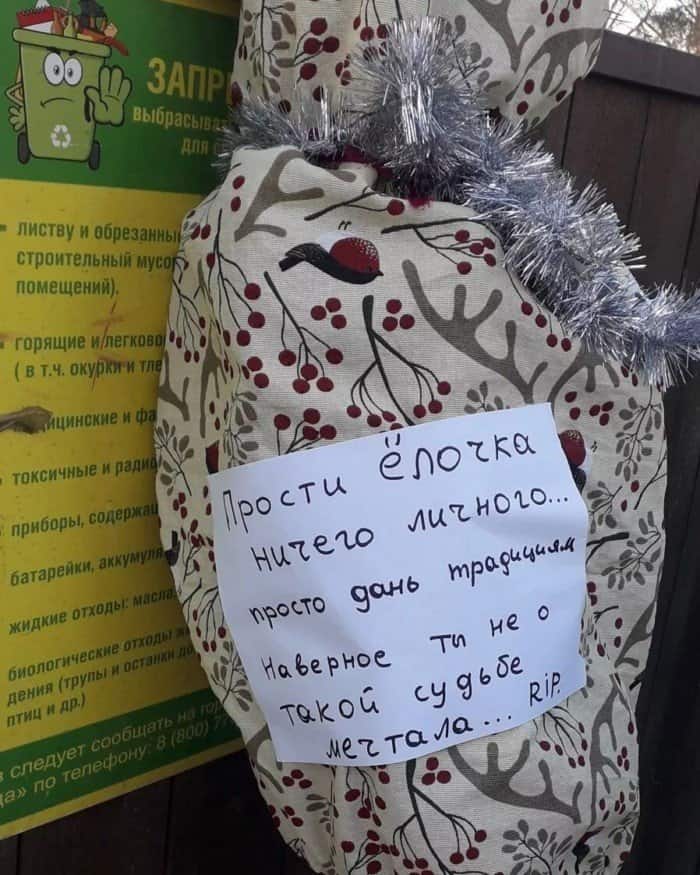 выбрасыват
для
листву и обрезанны
строительный мусо
помещений).
горящие и легково
( в т.ч. окурки и тле
токсичные и радио
приборы, содержащ
батарейки, аккумуля
жидкие отходы: масла
биологические отходы
дения (трупы и останки до
птиц и др.)
следует сообщать на гор
по телефону: 8 (800)
Прости ёлочка
ничего личного...
просто дань традициям
Наверное ты не о
такой судьбе
мечтала... RiP.